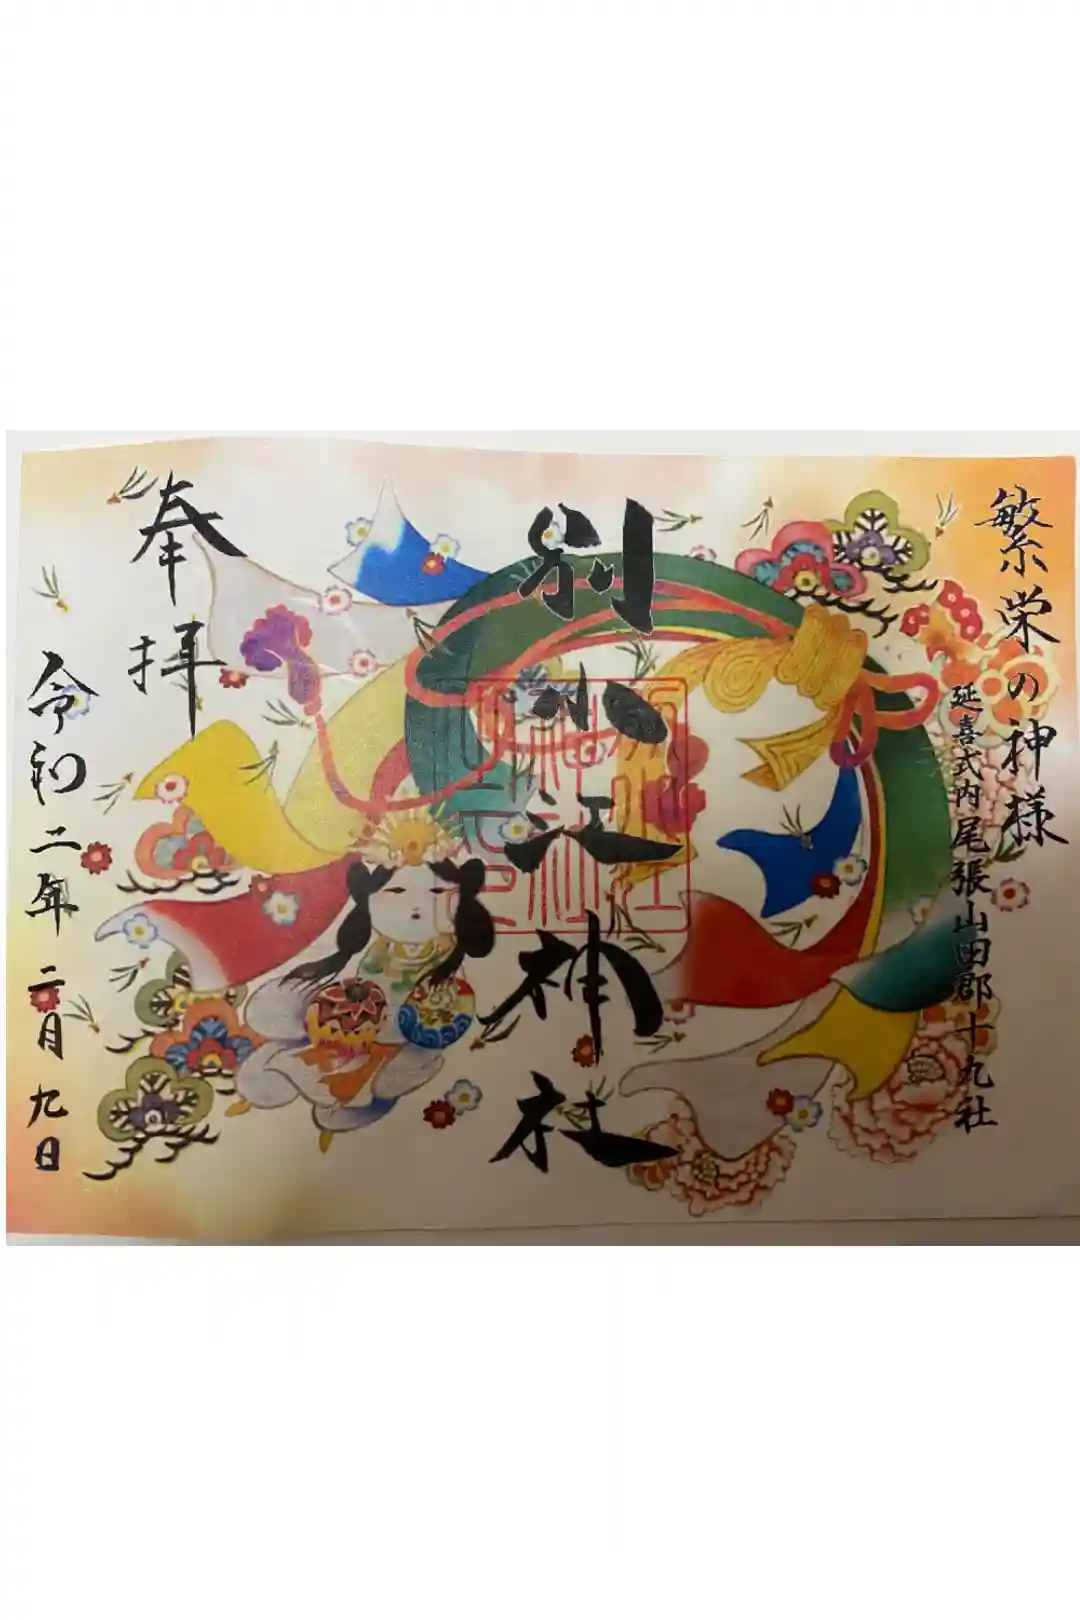 繁栄の神様
延喜式内尾張山田郡十九社
別小江神社
奉拝
令和二年二月九日